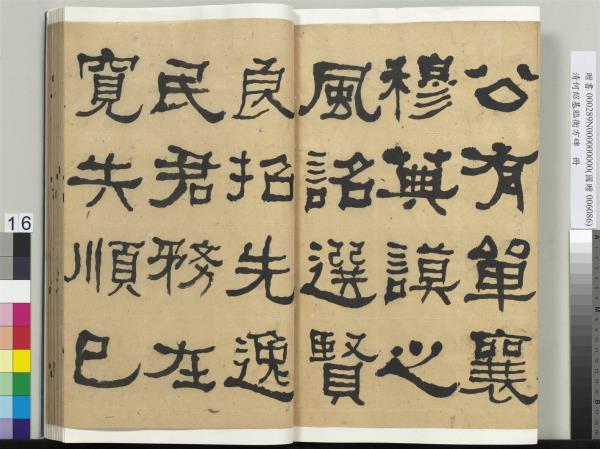 公有單襄
穆典謨之
風詔選賢
良招先逸
民君務在
寬失順已
贈書 000289N000000000(國贈 006086)
清何紹基臨衡方碑 冊
16